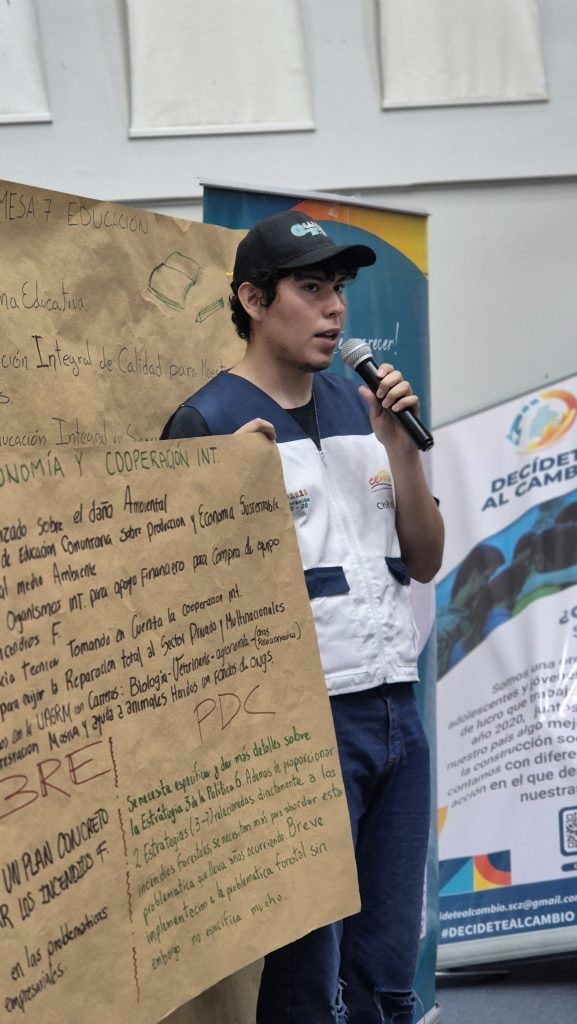 MESA 7 EDUCACIÓN
ma Educativa.
ción Integral de Calidad para Maest
s.
ducación Integral en
ONOMÍA Y COOPERACIÓN INT.
nzado sobre el daño Ambiental
de Educación Comunitaria sobre producción y Economía Sustentable
al medio Ambiente
Organismos INT. para apoyo Financiero para Compra de equipo
ncendios F.
cia Tecnica Tomando en Cuenta la cooperación int.
para exijir la Reparación total al Sector Privado y Multinacionales
con la UAGRM con Carreras: Biología-Veterinaria-agronomía-(otras Relacionadas)
restación Masiva y ayuda a animales Heridos con Fondos de ONGs.
BRE
UN PLAN CONCRETO
AR LOS INCENDIOS F.
en las problematicas
empresariales.
PDC
Se necesita especificar y dar más detalles sobre
la Estratégia 3 de la Política 6. Además de proporcionar
2 Estrategias (3-7) relacionadas directamente a los
incendios forestales, se necesitan más para abordar esta
problemática que lleva años ocurriendo. Breve
implementación a la problemática forestal sin
embargo no especifica mucho.
crecer!
DECÍDETE
AL CAMBIO
Somos una
adolescentes y jóvenes
de lucro que traba
año 2020, junt
nuestro país algo mej
la construcción so
contamos con difere
acción en el que de
nuestra
decidetealcambio.scz@gmail.com
#DECIDETEALCAMBIO